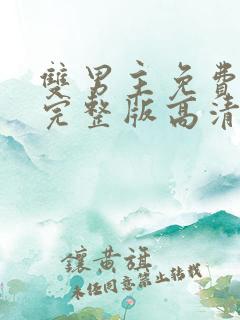 雙男主免費
完整版高清
鑲黃旗
未經同意禁止转载